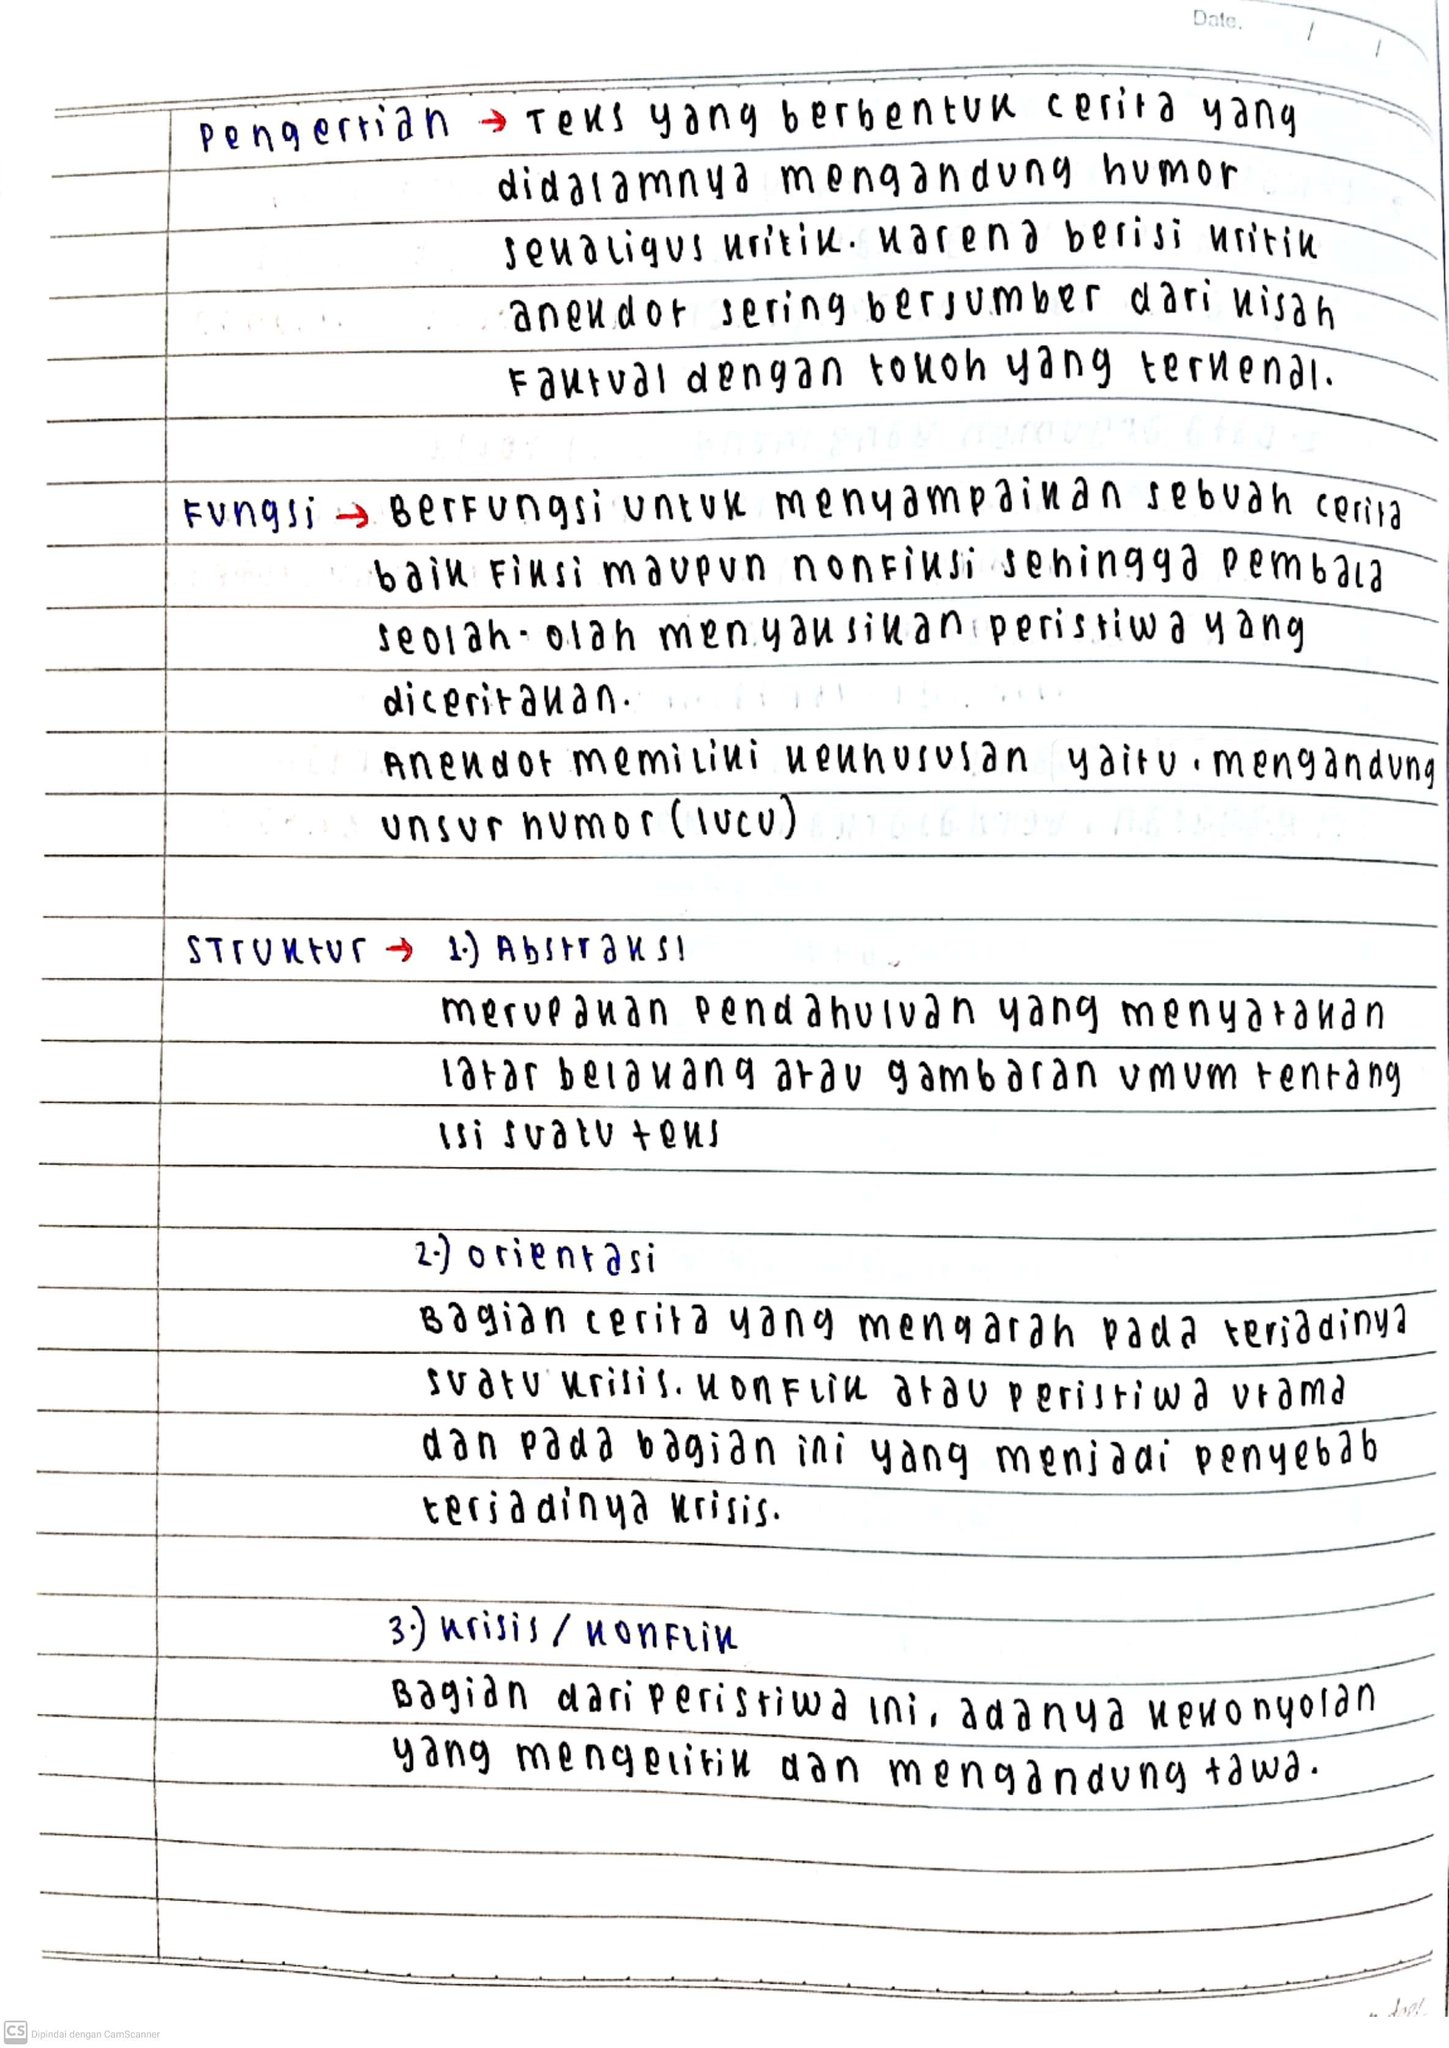 Date. / /
Pengertian → Teks yang berbentuk cerita yang
didalamnya mengandung humor
sekaligus kritik. Karena berisi kritik
anekdot sering bersumber dari kisah
Faktual dengan tokoh yang terkenal.
Fungsi → Berfungsi untuk menyampaikan sebuah cerita
baik Fiksi maupun nonFiksi sehingga pembaca
seolah-olah menyaksikan peristiwa yang
diceritakan.
Anekdot memiliki kekhususan yaitu. mengandung
unsur humor (lucu)
Struktur → 1.) Abstraksi
merupakan pendahuluan yang menyatakan
latar belakang atau gambaran umum tentang
isi suatu teks
2.) orientasi
Bagian cerita yang mengarah pada terjadinya
suatu krisis. konFlik atau peristiwa utama
dan pada bagian ini yang menjadi penyebab
terjadinya krisis.
3.) krisis / konFlik
Bagian dari peristiwa ini, adanya kekonyolan
yang mengelitik dan mengandung tawa.
CS Dipindai dengan CamScanner